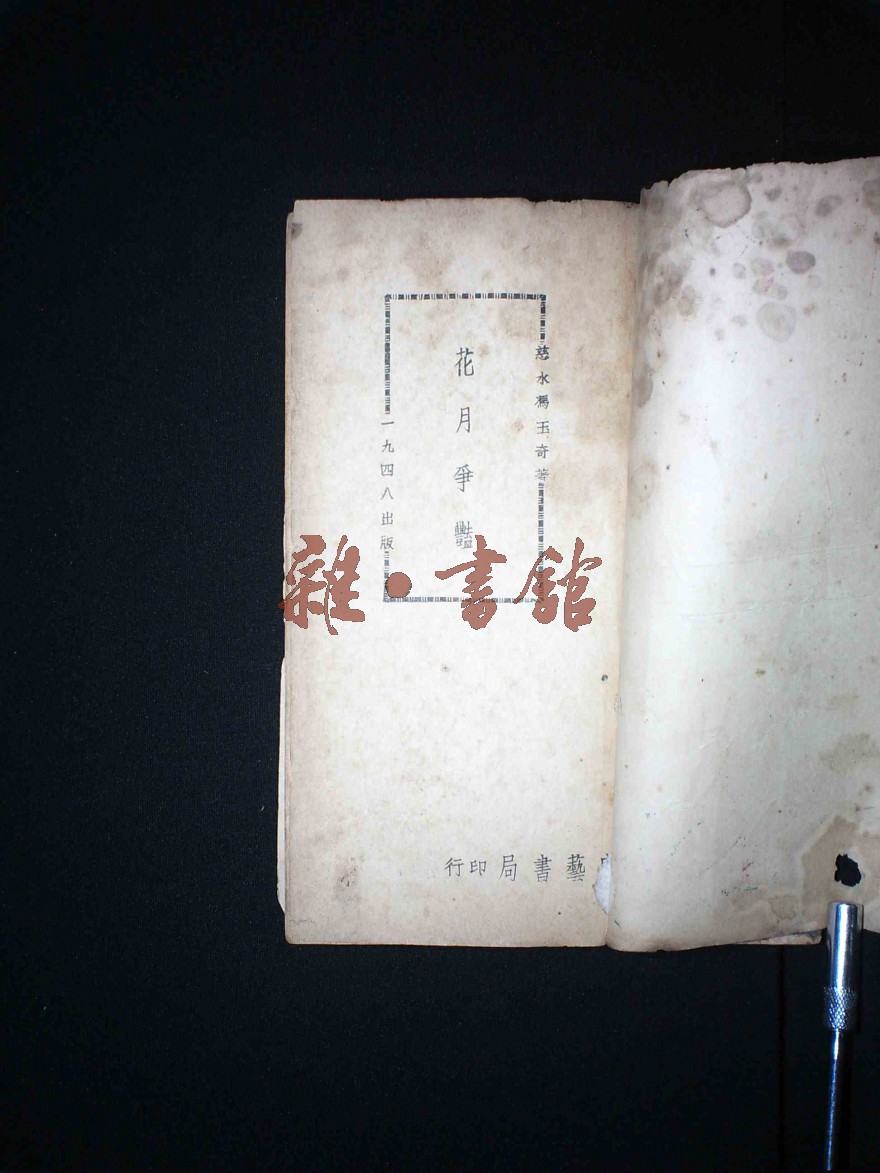 慈水馮玉奇著
花月爭豔
一九四八出版
藝書局印行
雜·書館